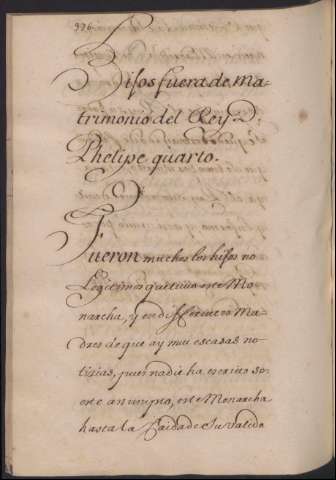 Hijos fuera de ma-
trimonio del Rey D.
Phelipe quarto.
Fueron muchos los hijos no
Legitimos que tuvo este Mo-
narcha, y en differentes Ma-
dres de que ay mui escasas no-
ticias, pues nadie ha escrito so-
este assumpto, este Monarcha
hasta la Caida de Su valido